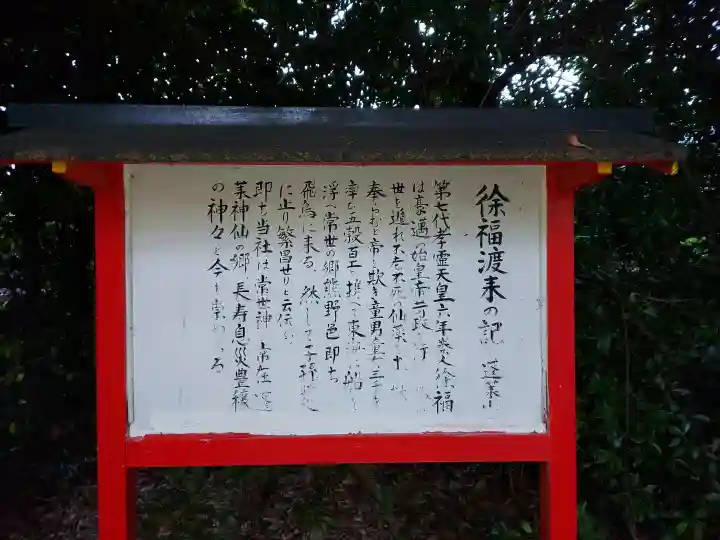 徐福渡来の記 蓬莱山
第七代孝霊天皇六年秦人徐福
は豪邁の始皇帝苛政
世を遁れ不老不死の仙薬
奉らむと帝を欺き童男童女三千を
率ひ五穀百工を携へて東海に船を
浮べ常世の郷熊野邑即ち
飛鳥に来る 然して子孫此処
に止り繁昌せりと云伝ふ
即ち当社は常世神 常在
莱神仙の郷 長寿息災豊穣
の神々と今も崇め る